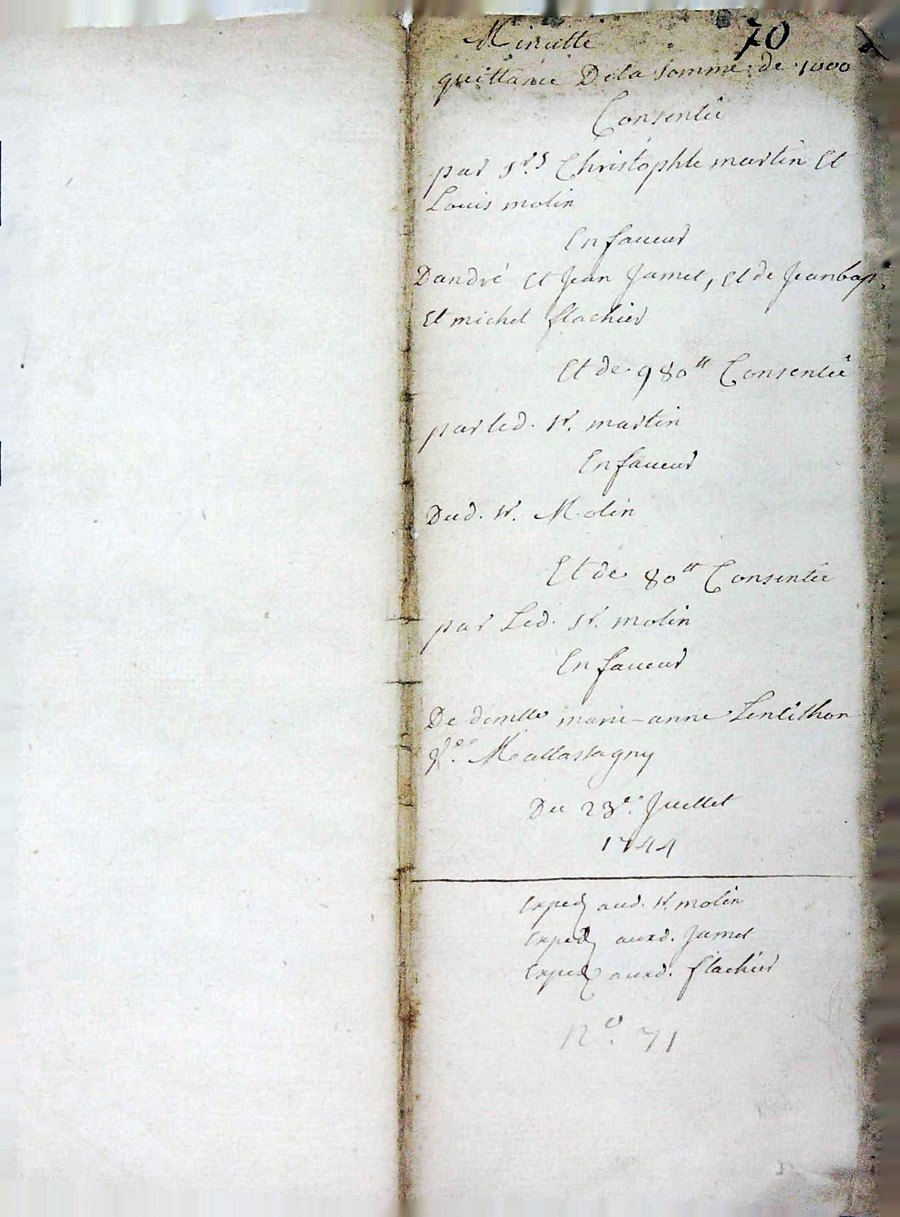 70
Minutte
quittance De la somme de 1000
Consentie
par Srs Christophle martin Et
Louis molin
En faveur
D'andré Et Jean Jamet, Et de Jean bap.
Et michel flachier
Et de 980tt Consentie
par led. Sr. martin
En faveur
Dud. Sr. Molin
Et de 80tt Consentie
par Led. Sr. molin
En faveur
De demlle marie-anne Lentithon
Mallassagny
Du 23e. Juillet
1744
Exped aud. Sr. molin
Exped auxd. Jamet
Exped auxd. flachier
No. 71